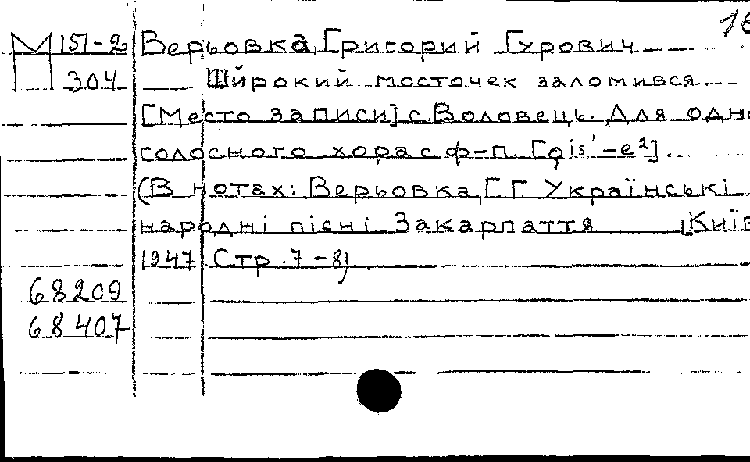 16
М 151-2 Верьовка, Григорий Гурович
304 Широкий мосточек заломився
[Место записи] с. Воловець. Для одно
голосного хора с ф-п. [gis'-e²]
(В нотах: Верьовка, Г.Г. Українські
народні пісні Закарпаття [Київ
1947 Стр. 7-8)
68209
68407